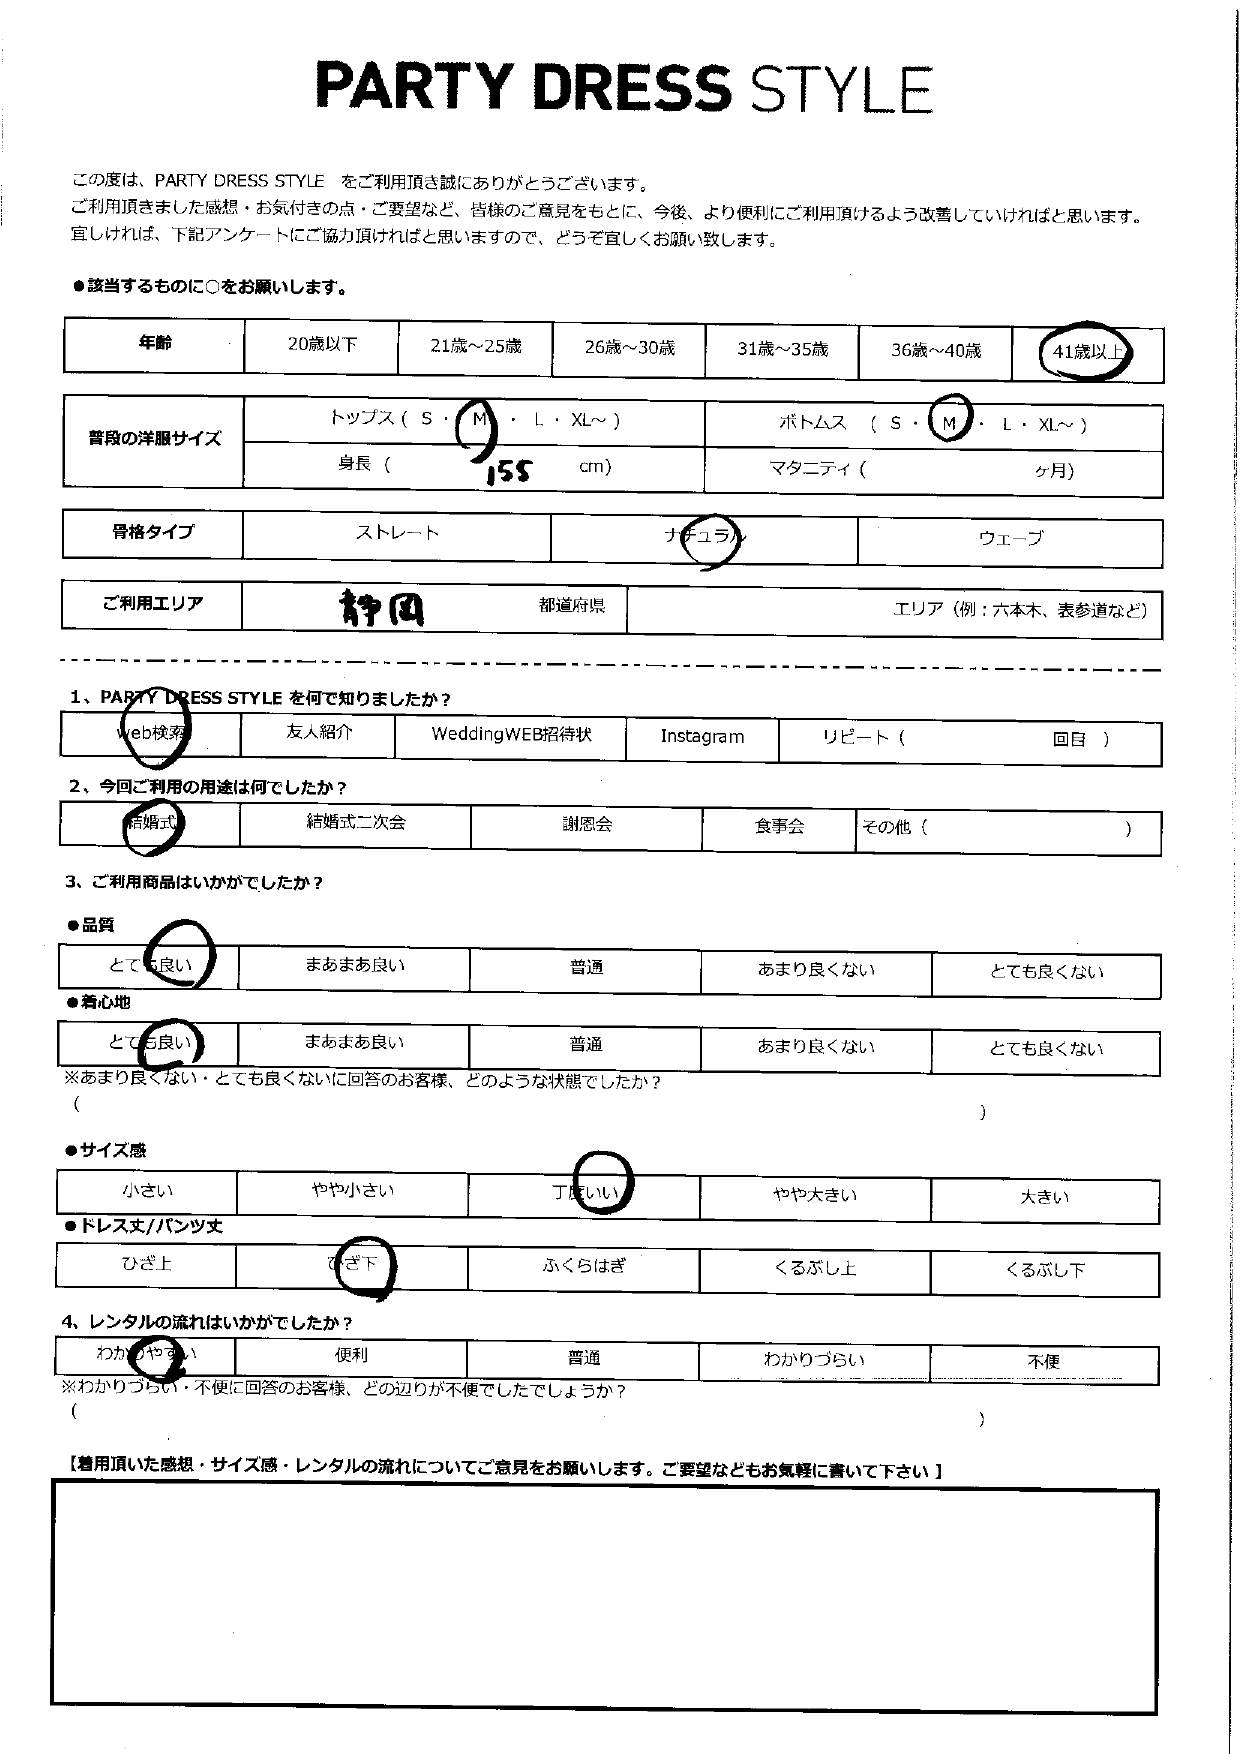 PARTY DRESS STYLE
この度は、PARTY DRESS STYLE をご利用頂き誠にありがとうございます。
ご利用頂きました感想・お気付きの点・ご要望など、皆様のご意見をもとに、今後、より便利にご利用頂けるよう改善していければと思います。
宜しければ、下記アンケートにご協力頂ければと思いますので、どうぞ宜しくお願い致します。
●該当するものに○をお願いします。
年齢 20歳以下 21歳～25歳 26歳～30歳 31歳～35歳 36歳～40歳 41歳以上
普段の洋服サイズ トップス ( S ・ M ・ L ・ XL～ ) ボトムス ( S ・ M ・ L ・ XL～ )
身長 ( 155 cm) マタニティ ( ヶ月)
骨格タイプ ストレート ナチュラル ウェーブ
ご利用エリア 静岡 都道府県 エリア（例：六本木、表参道など）
1、PARTY DRESS STYLE を何で知りましたか？
web検索 友人紹介 WeddingWEB招待状 Instagram リピート ( 回目 )
2、今回ご利用の用途は何でしたか？
結婚式 結婚式二次会 謝恩会 食事会 その他 ( )
3、ご利用商品はいかがでしたか？
●品質
とても良い まあまあ良い 普通 あまり良くない とても良くない
●着心地
とても良い まあまあ良い 普通 あまり良くない とても良くない
※あまり良くない・とても良くないに回答のお客様、どのような状態でしたか？
( )
●サイズ感
小さい やや小さい 丁度いい やや大きい 大きい
●ドレス丈/パンツ丈
ひざ上 ひざ下 ふくらはぎ くるぶし上 くるぶし下
4、レンタルの流れはいかがでしたか？
わかりやすい 便利 普通 わかりづらい 不便
※わかりづらい・不便に回答のお客様、どの辺りが不便でしたでしょうか？
( )
【着用頂いた感想・サイズ感・レンタルの流れについてご意見をお願いします。ご要望などもお気軽に書いて下さい 】